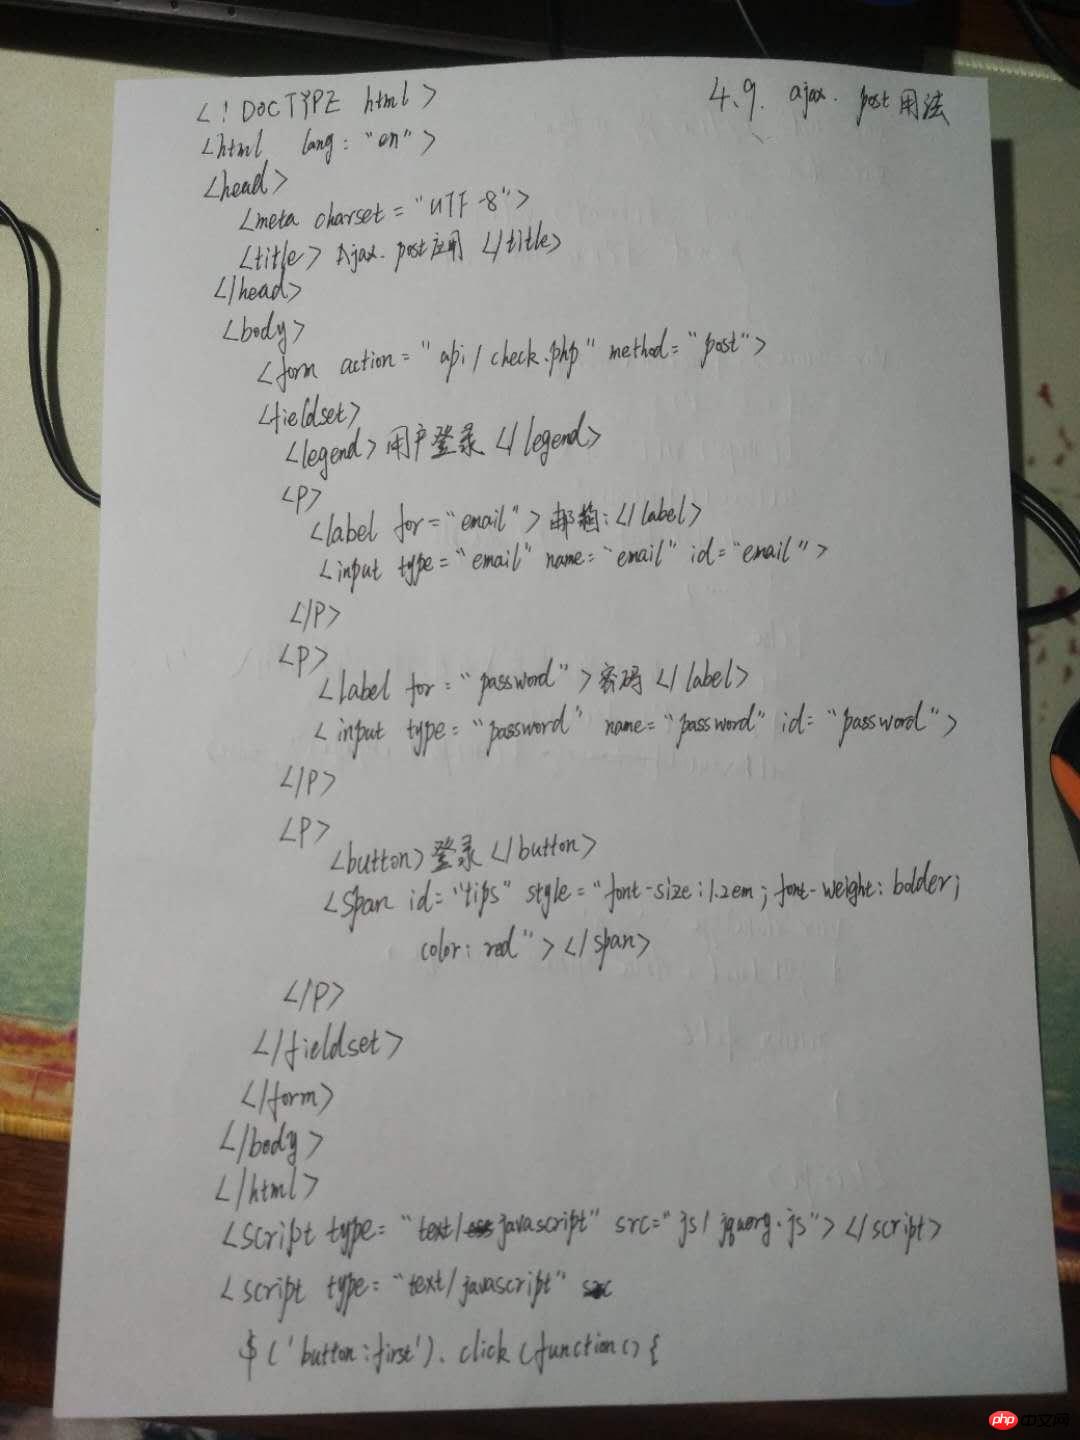 4.9. ajax. post 用法
<!DOCTYPE html>
<html lang: "en">
<head>
<meta charset="UTF-8">
<title> Ajax. post应用 </title>
</head>
<body>
<form action="api/check.php" method="post">
<fieldset>
<legend>用户登录</legend>
<P>
<label for="email">邮箱:</label>
<input type="email" name="email" id="email">
</P>
<P>
<label for="password">密码</label>
<input type="password" name="password" id="password">
</P>
<P>
<button>登录</button>
<span id="tips" style="font-size:1.2em; font-weight: bolder;
color: red"></span>
</P>
</fieldset>
</form>
</body>
</html>
<script type="text/javascript" src="js/jquery.js"></script>
<script type="text/javascript"
$('button:first').click(function(){
php中文网